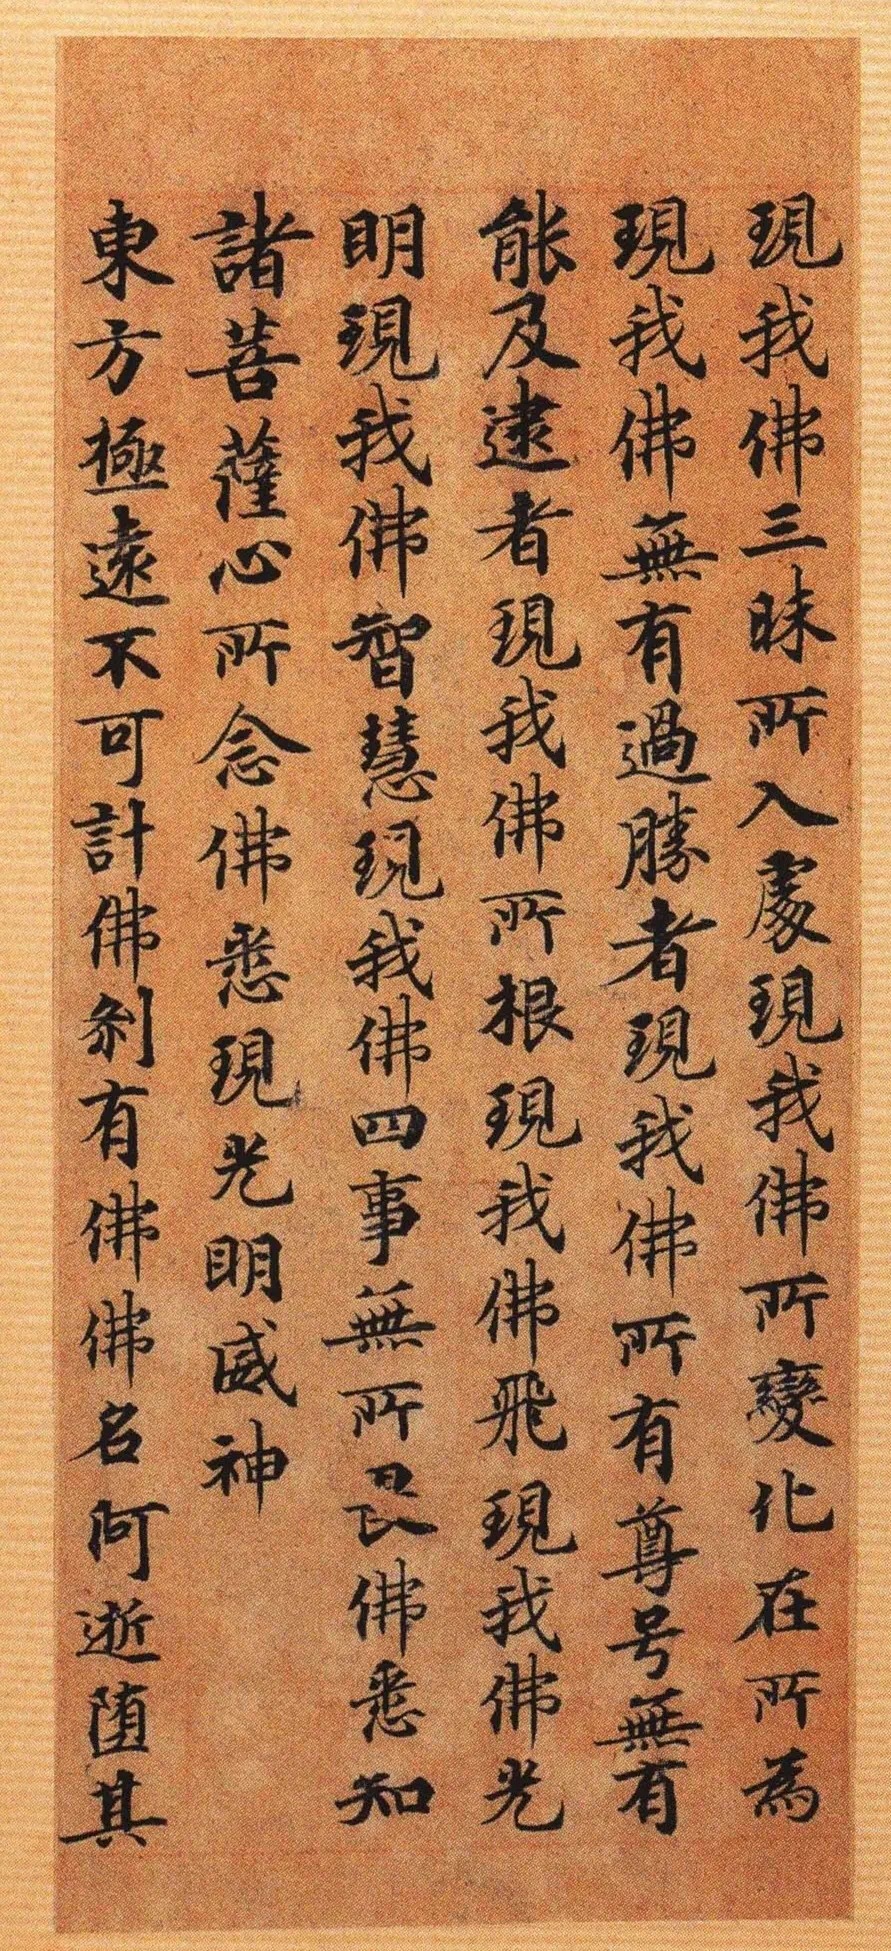 現我佛三昧所入處現我佛所變化在所為
現我佛無有過勝者現我佛所有尊号無有
能及逮者現我佛所根現我佛飛現我佛光
明現我佛智慧現我佛四事無所畏佛悉知
諸菩薩心所念佛悉現光明威神
東方極遠不可計佛剎有佛佛名阿逝墮其